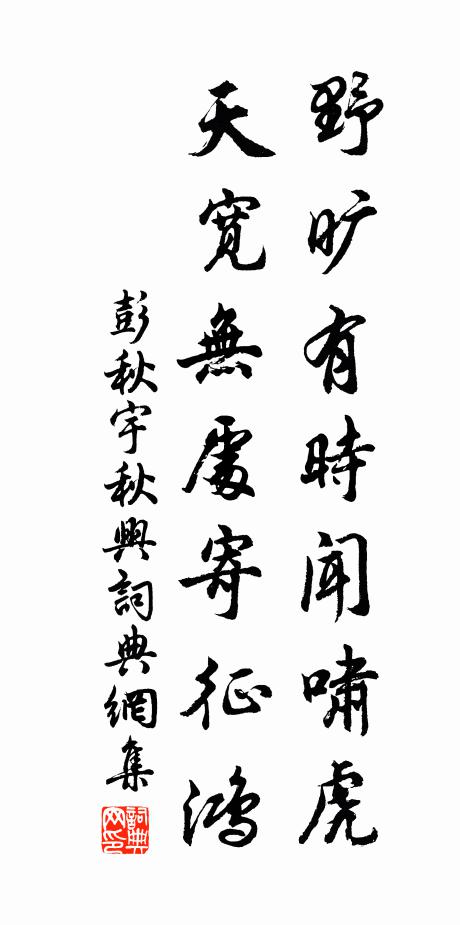 野旷有時闻啸虎
天寛無處寄征鴻
彭秋宇秋興詞典網集
詞典网印